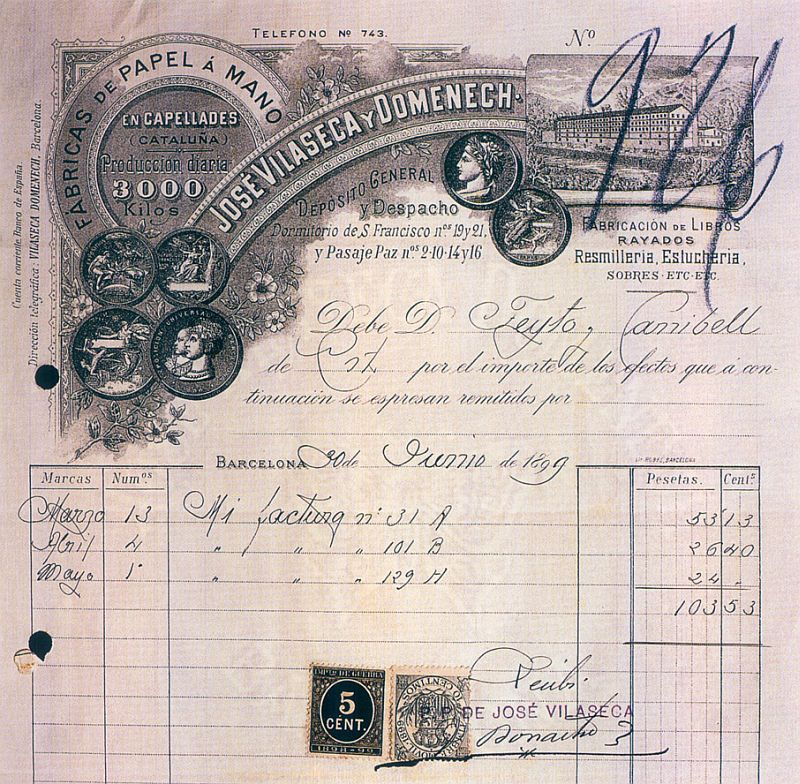 TELEFONO Nº 743.
Nº
976
FÁBRICAS DE PAPEL Á MANO
EN CAPELLADES
(CATALUÑA)
Producción diaria
3000
Kilos
JOSÉ VILASECA Y DOMENECH.
DEPÓSITO GENERAL
Y DESPACHO
Dormitorio de S. Francisco nos 19 y 21.
y Pasaje Paz nos 2-10-14 y 16
FABRICACIÓN DE LIBROS
RAYADOS
Resmilleria, Estucheria,
SOBRES-ETC-ETC.
Cuenta corriente Banco de España.
Dirección telegráfica: VILASECA DOMENECH. Barcelona.
Debe D. Feyto y Carribell
de Cta por el importe de los efectos que á con-
tinuación se espresan remitidos por
BARCELONA 30 de Junio de 1899
Marcas Numos Pesetas. Centº
Marzo 13 Mi factura nº 31 A 53 13
Abril 4 " " " 101 B 26 40
Mayo 1º " " " 129 H 24 "
103 53
IMPTO DE GUERRA
5
CENT.
1898-99
10 CENTIMOS
Recibí
DE JOSÉ VILASECA